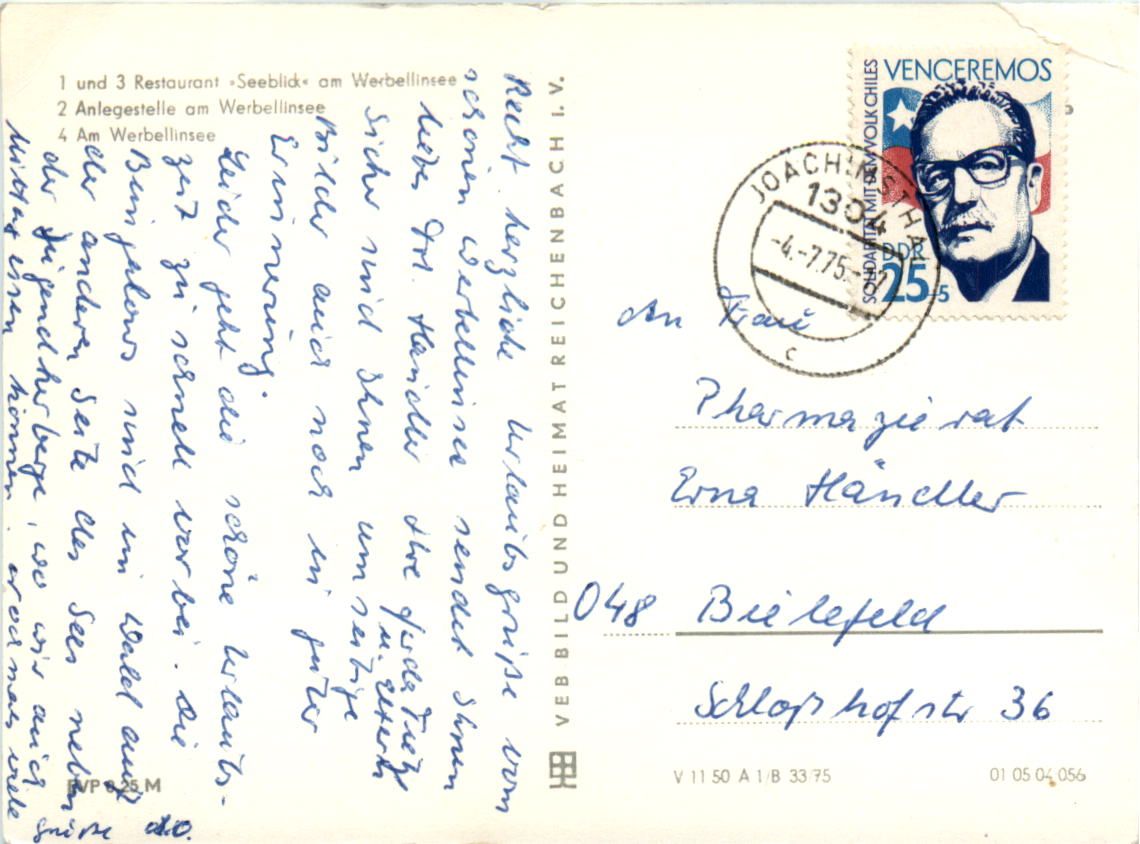 1 und 3 Restaurant »Seeblick« am Werbellinsee
2 Anlegestelle am Werbellinsee
4 Am Werbellinsee
Recht herzliche Urlaubsgrüße vom
schönen Werbellinsee sendet Ihnen
liebe Ihre
u. Eltern
Sicher sind Ihnen umseitige
Bilder auch noch in guter
Erinnerung.
Leider geht die schöne Urlaubs-
zeit zu schnell vorbei. Die
Bungalows sind im Wald auf
der anderen Seite des Sees neben
der Jugendherberge, wo wir auch
Mittag essen können. viele
Grüße d.O.
EVP 0,25 M
VEB BILD UND HEIMAT REICHENBACH I. V.
VENCEREMOS
SOLIDARITÄT MIT DEM VOLK CHILES
DDR
25+5
JOACHIMSTHAL
1304
-4.-7.75.
c
An Frau
Pharmazierat
Erna Händler
048 Bielefeld
Schloßhofstr 36
V 11 50 A 1/B 33/75
01 05 04 056